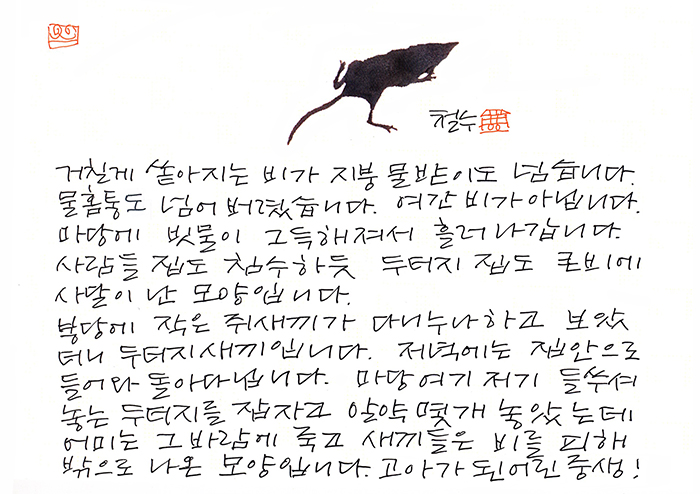 철수
거칠게 쏟아지는 비가 지붕 물받이도 넘습니다.
물홈통도 넘어 버렸습니다. 여간 비가 아닙니다.
마당에 빗물이 그득해져서 흘러 나갑니다.
사람들 집도 침수하듯 두터지 집도 큰비에
사달이 난 모양입니다.
봉당에 작은 쥐새끼가 다니누나 하고 보았
더니 두터지새끼입니다. 저녁에는 집안으로
들어와 돌아다닙니다. 마당 여기 저기 들쑤셔
놓는 두터지를 잡자고 알약 몇개 놓았는데
어미는 그 바람에 죽고 새끼들은 비를 피해
밖으로 나온 모양입니다. 고아가 된 어린 중생!